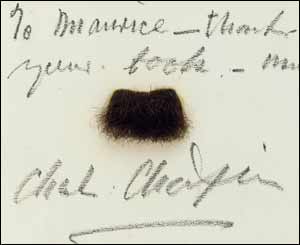 To Maurice – thank
your book – m
Chas. Chaplin